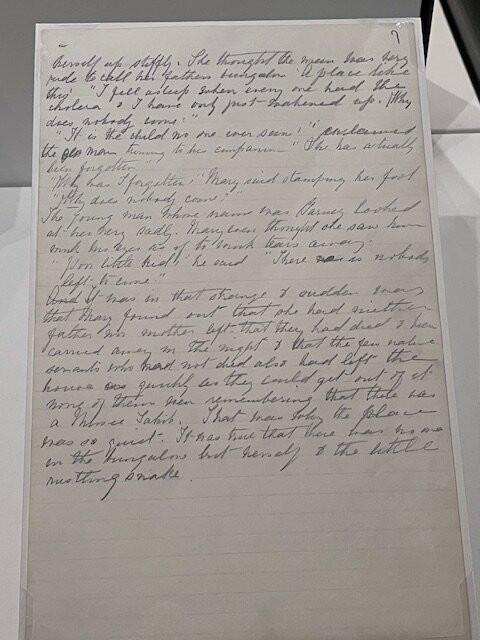 7
herself up stiffly. She thought the man was very
rude to call her fathers bungalow "A place like
this" "I fell asleep when every one had the
cholera & I have only just wakened up. Why
does nobody come?"
"It is the child no one ever saw!" exclaimed
the man turning to his companion "She has actually
been forgotten"
"Why was I forgotten?" Mary said stamping her foot
"Why does nobody come?"
The young man whose name was Barney looked
at her very sadly. Mary even thought she saw him
wink his eyes as if to wink tears away.
"Poor little kid!" he said "There is nobody
left to come."
And it was in that strange & sudden way
that Mary found out that she had neither
father nor mother left that they had died & been
carried away in the night & that the few native
servants who had not died also had left the
house as quickly as they could get out of it
none of them even remembering that there was
a Missie Sahib. That was why the place
was so quiet. It was true that there was no one
in the bungalow but herself & the little
rustling snake.